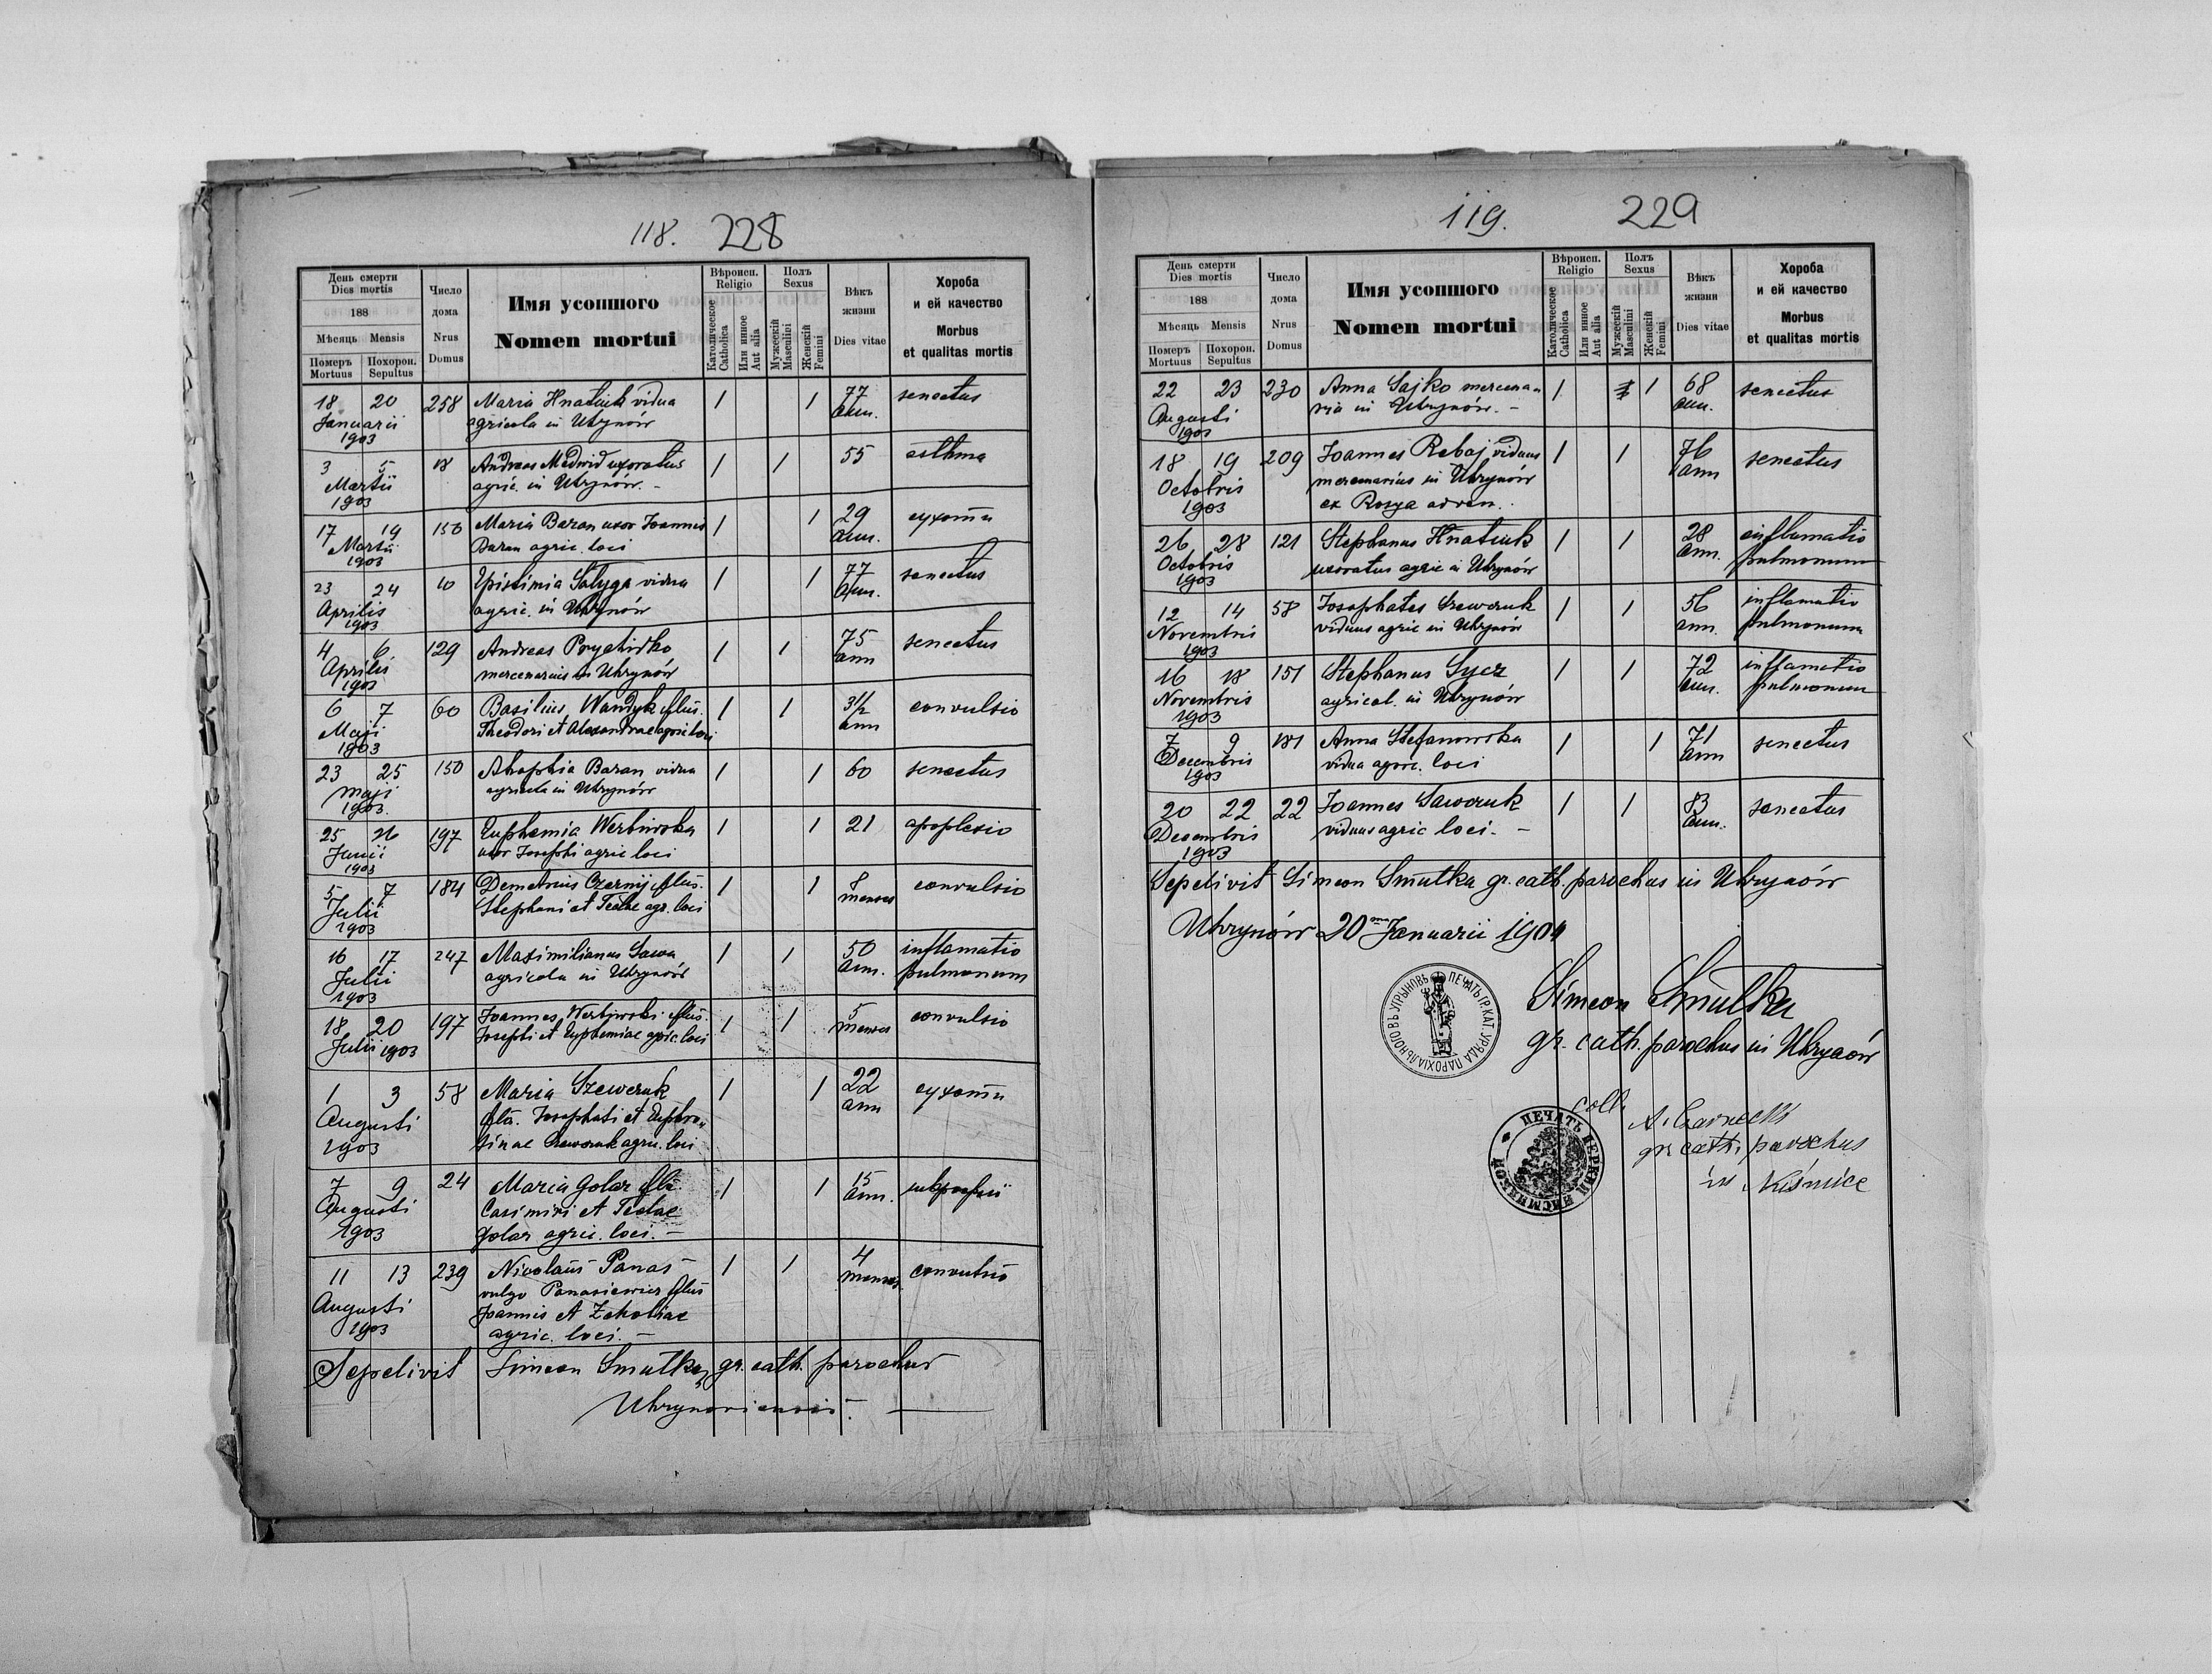 118. 228
День смерти
Dies mortis
188
Мѣсяць Mensis
Померъ Mortuus
Похорон. Sepultus
Число дома Nrus Domus
Имя усопшого
Nomen mortui
Вѣроисп. Religio
Католическое Catholica
Или инное Aut alia
Полъ Sexus
Мужескій Masculini
Женскій Femini
Вѣкъ жизни
Dies vitae
Хороба и ей качество
Morbus et qualitas mortis
18 20 258 Maria Hnatiuk vidua 1 1 77 senectus
Januarii agricola in Uhrynów ann.
1903
3 5 18 Andreas Medwid uxoratus 1 1 55 asthma
Martii agric. in Uhrynów. -
1903
17 19 150 Maria Baran uxor Joannis 1 1 29 сухоти
Martii Baran agric. loci ann.
1903
23 24 10 Episimia Salyga vidua 1 1 77 senectus
Aprilis agric. in Uhrynów ann.
1903
4 6 129 Andreas 1 1 75 senectus
Aprilis mercenarius in Uhrynów ann
1903
6 7 60 Basilius Wandyk flius. 1 1 3 1/2 convulsio
Maji Theodori et Alexandrae agric. loci ann
1903
23 25 150 Ahaphia Baran vidua 1 1 60 senectus
maji agricola in Uhrynów
1903.
25 26 197 Euphemia Werbiwska 1 1 21 apoplexio
Junii uxor Josephi agric loci
1903
5 7 184 Demetrius Czernij flius. 1 1 8 convulsio
Julii Stephani et Teclae agr. loci menses
1903
16 17 247 Maximilianus Sawa 1 1 50 inflamatio
Julii agricola in Uhrynów ann. pulmonum
1903
18 20 197 Joannes Werbiwski flius. 1 1 5 convulsio
Julii 1903 Josephi et Euphemiae agric. loci menses
1 3 58 Maria Szewczuk 1 1 22 сухоти
Augusti flia. Josaphati et Euphro„ ann
1903 sinae Szewczuk agric. loci
7 9 24 Maria Golar flia. 1 1 15
Augusti Casimiri et Teclae ann.
1903 Golar agric. loci. -
11 13 239 Nicolaus Panas 1 1 4 convulsio
Augusti vulgo Panasiewicz flius menses
1903 Joannis et
agric. loci. -
Sepelivit Simeon Smulka, gr. cath. parochus
Uhrynoviensis. -
119. 229
День смерти
Dies mortis
188
Мѣсяць Mensis
Померъ Mortuus
Похорон. Sepultus
Число дома Nrus Domus
Имя усопшого
Nomen mortui
Вѣроисп. Religio
Католическое Catholica
Или инное Aut alia
Полъ Sexus
Мужескій Masculini
Женскій Femini
Вѣкъ жизни
Dies vitae
Хороба и ей качество
Morbus et qualitas mortis
22 23 230 Anna Sajko mercena„ 1 1 68 senectus
Augusti ria in Uhrynów. - ann.
1903
18 19 209 Joannes Rebaj viduus 1 1 76 senectus
Octobris mercenarius in Uhrynów ann
1903 ex Rosya adven.
26 28 121 Stephanus Hnatiuk 1 1 28 inflamatio
Octobris uxoratus agric in Uhrynów ann. pulmonum
1903
12 14 58 Josaphates Szewczuk 1 1 56 inflamatio
Novembris viduus agric in Uhrynów ann. pulmonum
1903
16 18 151 Stephanus Sycz 1 1 72 inflamatio
Novembris agricol. in Uhrynów ann. pulmonum
1903
7 9 181 Anna Stefanowska 1 1 71 senectus
Decembris vidua agric. loci ann
1903
20 22 22 Joannes Sawczuk 1 1 83 senectus
Decembris viduus agric loci. - ann.
1903
Sepelivit Simeon Smulka gr. cath. parochus in Uhrynów
Uhrynów 20 Januarii 1904
ПЕЧАТЬ ГР. КАТ. УРЯДА ПАРОХІАЛЬНОГО ВЪ УГРЫНОВЪ
Simeon Smulka
gr. cath. parochus in Uhrynów
coll.
gr. cath. parochus
in Niśmice
ПЕЧАТЬ ЦЕРКВИ НИСМИЦКОЙ